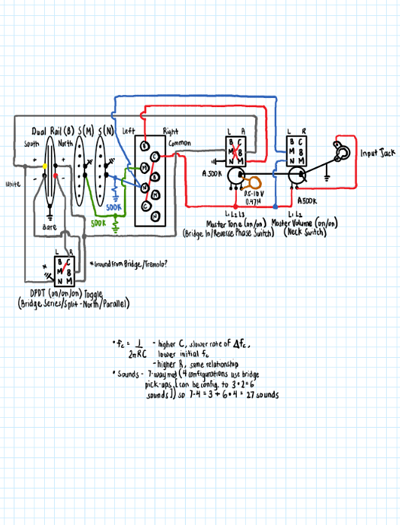 Dual Rail (B) S(M) S(N) Left Right
South North
Common
White
Bare
500K
500K
L R
B C
M B
N M
A.500K
0.5-10V
0.47M
L R
B C
M B
N M
Input Jack
A500K
L1 L2 L3
L1 L2
Master Tone (on/on)
(Bridge In/Reverse Phase Switch)
Master Volume (on/on)
(Neck Switch)
L R
B C
M B
N M
*Ground from Bridge/Tremolo?
DPDT (on/on/on) Toggle
(Bridge Series/Split-North/Parallel)
* fc = 1 - higher C, slower rate of Δfc,
2πRC lower initial fc
- higher R, same relationship
* Sounds - 7-way
(4 configurations use bridge
pick-ups, can be config. to 3*2=6
sounds)) so 7-4=3+6*4=27 sounds